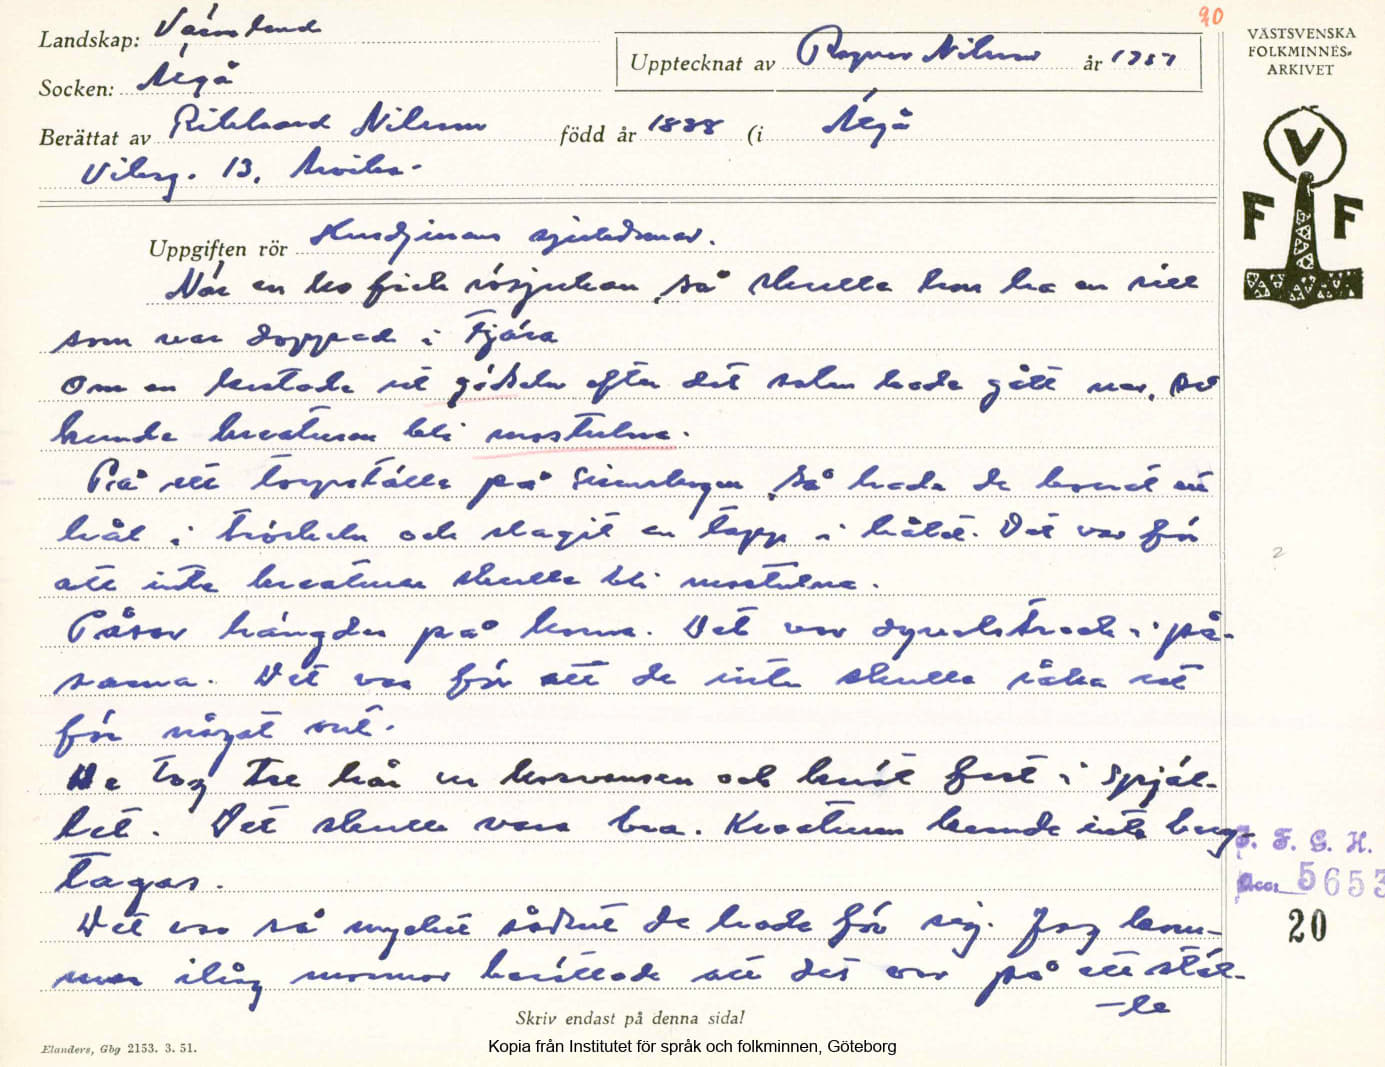 90
Landskap: Värmland
Upptecknat av Ragnar Nilsson år 1957
Socken: Älgå
Berättat av Rikhard Nilsson född år 1888 (i Älgå
Viksg. 13, Arvika.
VÄSTSVENSKA
FOLKMINNES-
ARKIVET
V
F F
Uppgiften rör Husdjurens sjukdomar.
När en ko fick rösjukan, så skulle hon ha en sill
som var doppad i tjära
Om en kastade ut gödseln efter det solen hade gått ner, så
kunde kreaturen bli modstulna.
På ett torpställe på så hade de borrat ett
hål i tröskeln och slagit en tapp i hålet. Det var för
att inte kreaturen skulle bli modstulna.
Påsar hängdes på korna. Det var dyvelsträck i på-
sarna. Det var för att de inte skulle råka ut
för något ont.
De tog tre hår ur korumpan och knöt fast i spjäl-
let. Det skulle vara bra. Kreaturen kunde inte berg-
tagas.
Det var så mycket sådant de hade för sig. Jag kom-
mer ihåg mormor berättade att det var på ett stäl-
-le
F. G. H.
Acc. 5653
20
Skriv endast på denna sida!
Elanders, Gbg 2153. 3. 51.
Kopia från Institutet för språk och folkminnen, Göteborg